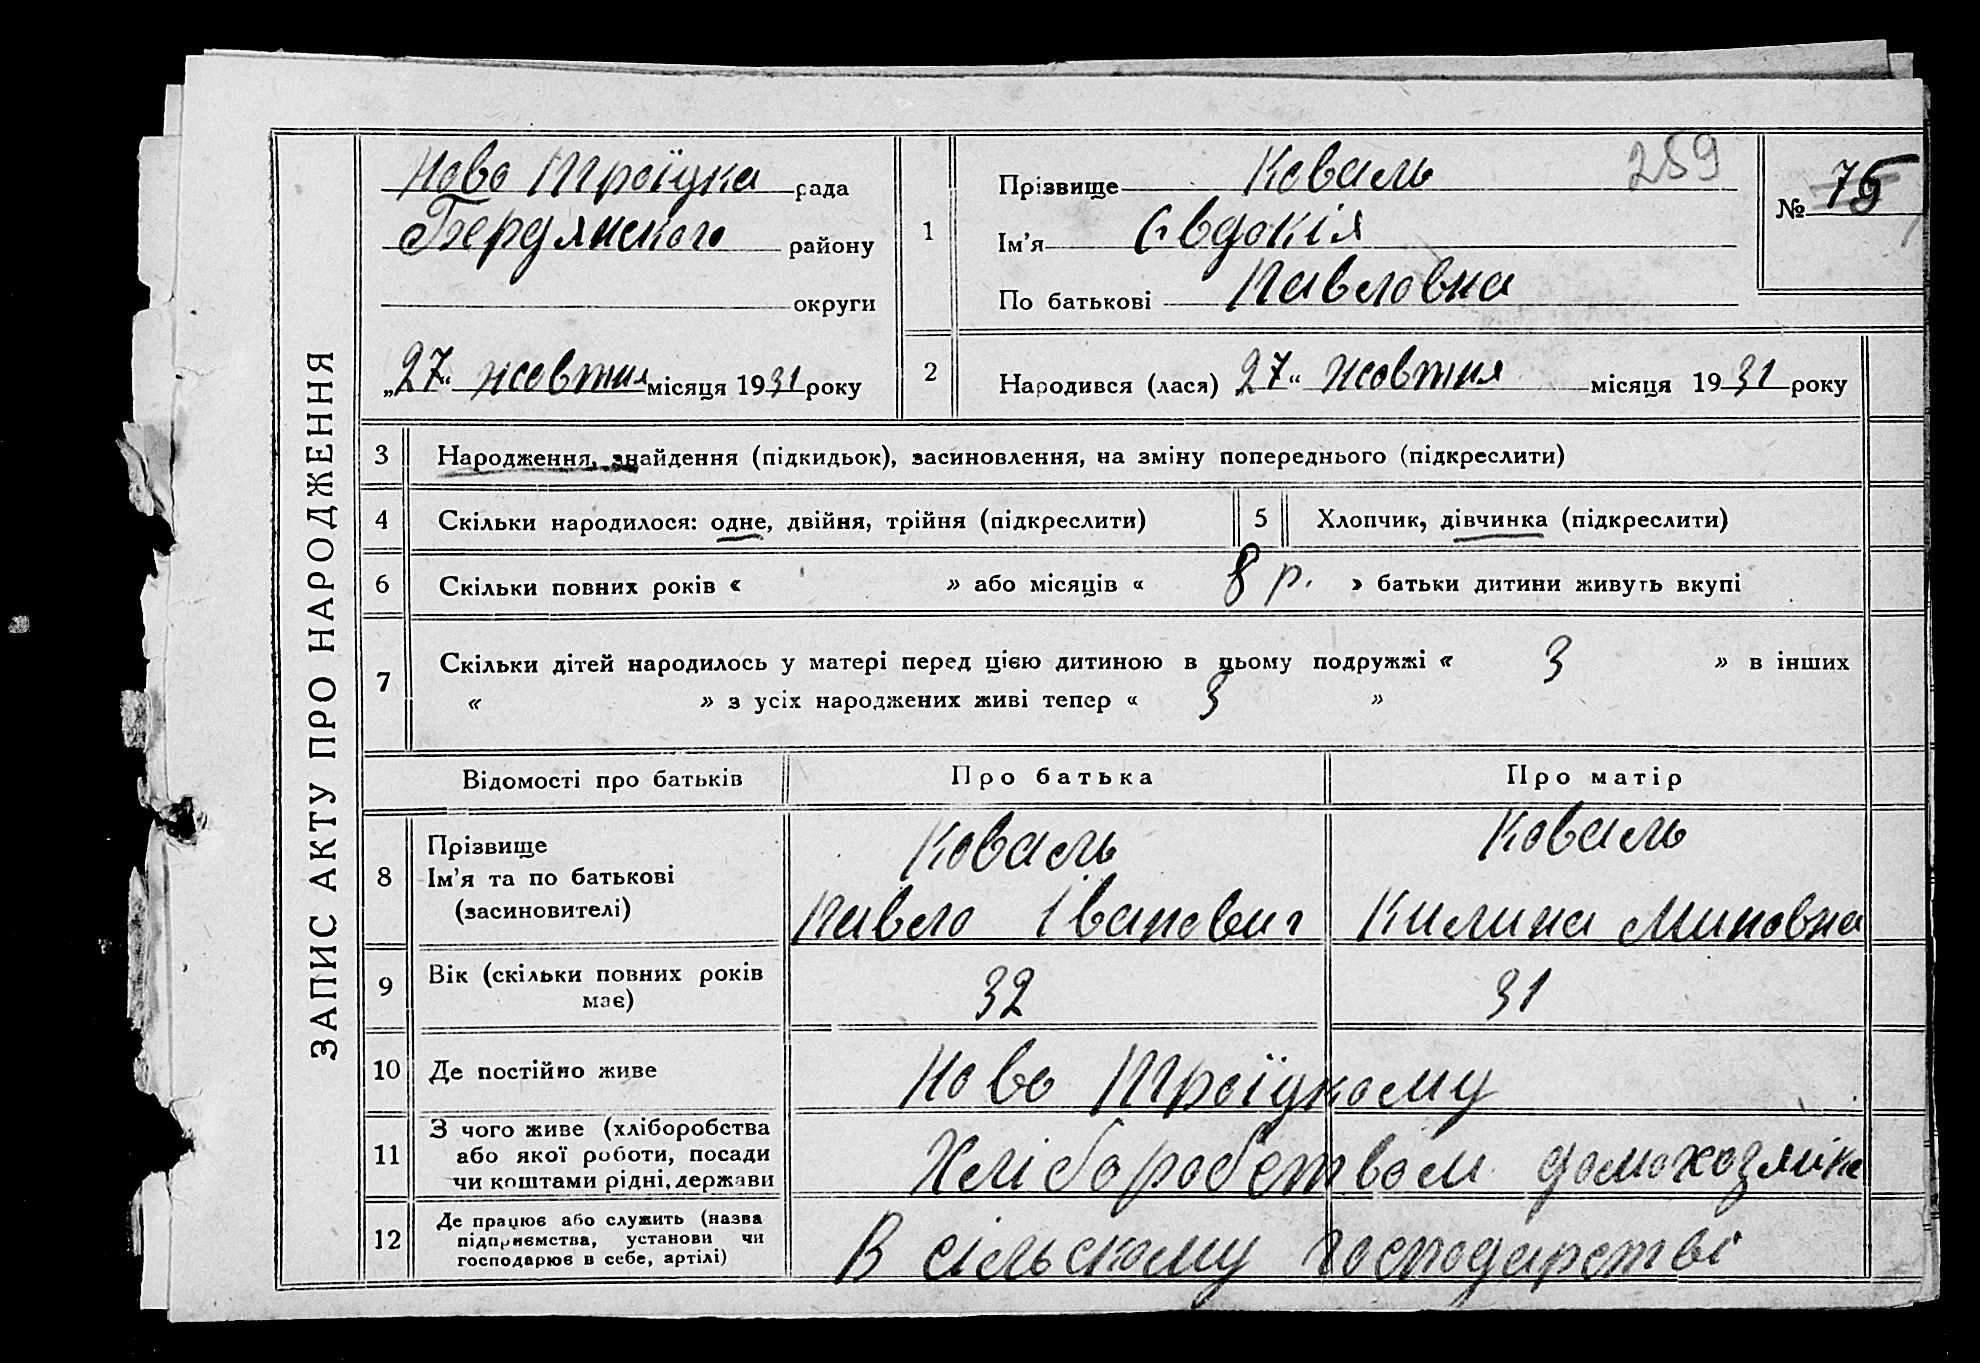 ЗАПИС АКТУ ПРО НАРОДЖЕННЯ
Ново Троїцка рада
Бердянского району
округи
„27“ жовтня місяця 1931 року
1
Прізвище Коваль 259
Ім'я Євдокія
По батькові Павловна
№ 75
2
Народився (лася) 27“ жовтня місяця 1931 року
3 Народження, знайдення (підкидьок), засиновлення, на зміну попереднього (підкреслити)
4 Скільки народилося: одне, двійня, трійня (підкреслити) 5 Хлопчик, дівчинка (підкреслити)
6 Скільки повних років « » або місяців « 8 р. » батьки дитини живуть вкупі
7 Скільки дітей народилось у матері перед цією дитиною в цьому подружжі « 3 » в інших
« » з усіх народжених живі тепер « 3 »
Відомості про батьків Про батька Про матір
8 Прізвище
Ім'я та по батькові
(засиновителі)
Коваль
Павло Іванович
Коваль
Килина Миновна
9 Вік (скільки повних років
має)
32 31
10 Де постійно живе Ново Троїцкому
11 З чого живе (хліборобства
або якої роботи, посади
чи коштами рідні, держави
Хліборобством домохозяйка
12 Де працює або служить (назва
підприємства, установи чи
господарює в себе, артілі)
В сільскому господарстві